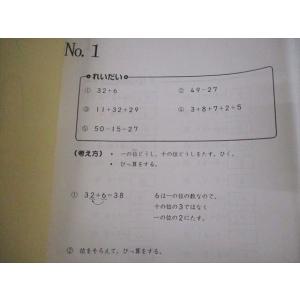 No. 1
れいだい
① 32+6 ② 49-27
③ 11+32+29 ④ 3+8+7+2+5
⑤ 50-15-27
(考え方) • 一の位どうし、十の位どうしをたす、ひく。
• ひっ算をする。
① 32+6=38 6は一の位の数なので、
十の位の3ではなく
一の位の2にたす。
② 位をそろえて、ひっ算をする。